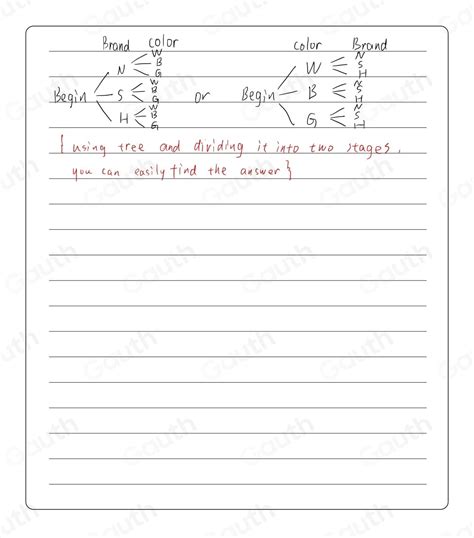 Brand color color Brand
N W B G W N S H
Begin S W B G or Begin B N S H
H W B G G N S H
{using tree and dividing it into two stages,
you can easily find the answer}